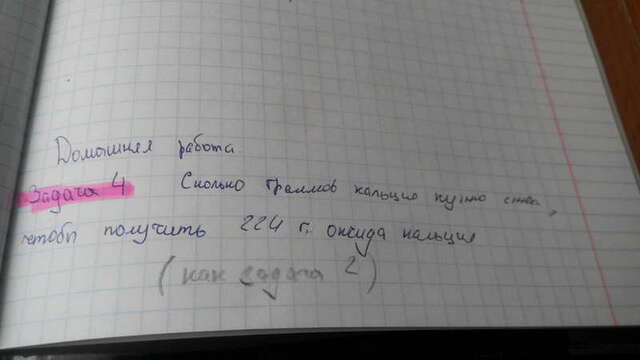 Домашняя работа
Задача 4 Сколько граммов кальция нужно сжечь,
чтобы получить 224 г. оксида кальция
(как задача 2)